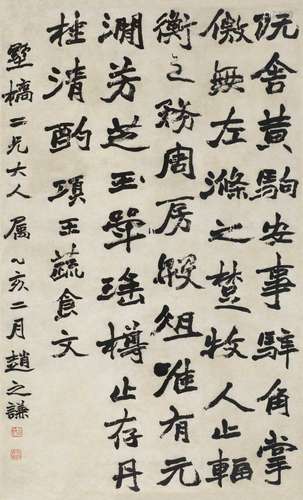 阮舍黄駒安事騂角掌
儌無左滌之楚牧人止輻
衡之務周房殷俎准有元
澗芳芝玉斝瑤樽止存丹
桂清酌項王蔬食文
橋二兄大人属乙亥二月趙之謙